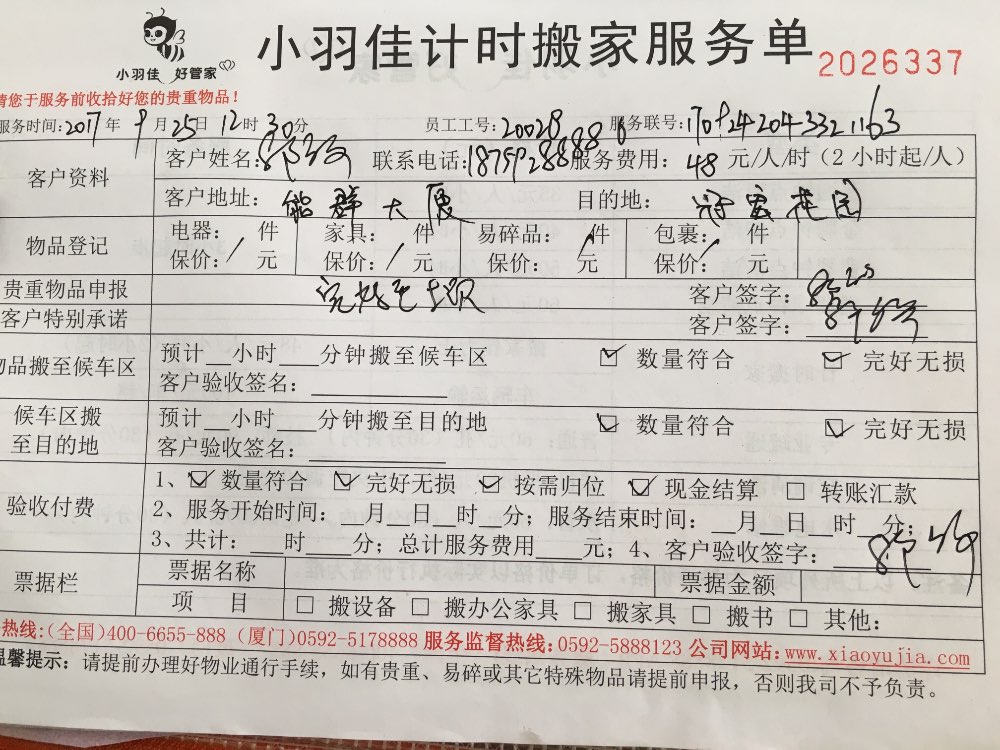 小羽佳 好管家
小羽佳计时搬家服务单 2026337
请您于服务前收拾好您的贵重物品！
服务时间：2017年9月25日12时30分 员工工号：20028 服务联号：
客户资料 客户姓名： 联系电话： 服务费用：48元/人/时（2小时起/人）
客户地址：能群大厦 目的地：
物品登记 电器： 件 家具： 件 易碎品： 件 包裹： 件
保价：/ 元 保价：/ 元 保价： / 元 保价： / 元
贵重物品申报 客户签字：
客户特别承诺 客户签字：
物品搬至候车区 预计__小时___分钟搬至候车区 ☑ 数量符合 ☑ 完好无损
客户验收签名：
候车区搬至目的地 预计__小时___分钟搬至目的地 ☑ 数量符合 ☑ 完好无损
客户验收签名：
验收付费 1、☑ 数量符合 ☑ 完好无损 ☑ 按需归位 ☑ 现金结算 □ 转账汇款
2、服务开始时间：__月__日__时__分；服务结束时间：__月__日__时__分；
3、共计：___时___分；总计服务费用___元；4、客户验收签字：
票据栏 票据名称 票据金额
项 目 □ 搬设备 □ 搬办公家具 □ 搬家具 □ 搬书 □ 其他：
热线：(全国)400-6655-888 (厦门)0592-5178888 服务监督热线：0592-5888123 公司网站：www.xiaoyujia.com
温馨提示：请提前办理好物业通行手续，如有贵重、易碎或其它特殊物品请提前申报，否则我司不予负责。